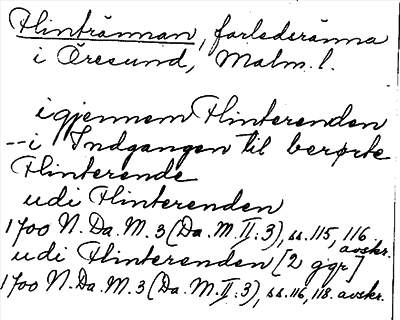 Flintrännan, farledsränna
i Öresund, Malm. l.
igjennem Flinterenden
--i Indgangen til berørte
Flinterende
udi Flinterenden
1700 N. Da. M. 3 (Da. M. II:3), ss. 115, 116
avskr.
udi Flinterenden [2 ggr]
1700 N. Da. M. 3 (Da. M. II:3), ss. 116, 118. avskr.